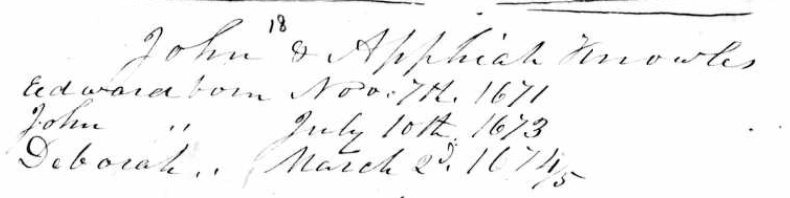 18
John & Apphiah Knowles
Edward born Nov. 7th. 1671
John " July 10th. 1673
Deborah " March 2d. 1674/5